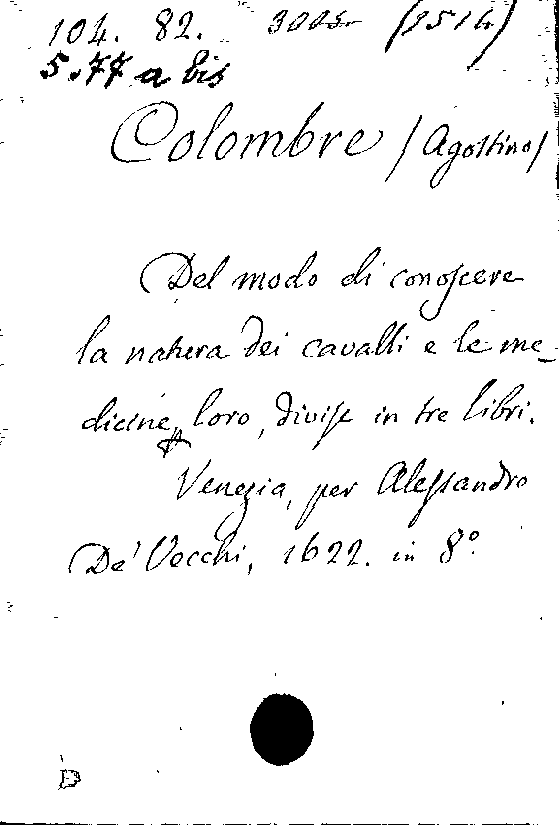 104. 82. 3005 (1514)
5.77 a bis
Colombre (Agostino)
Del modo di conoscere
la natura dei cavalli e le me_
dicine loro, divise in tre libri.
Venezia, per Alessandro
De' Vecchi, 1622. in 8º.
D